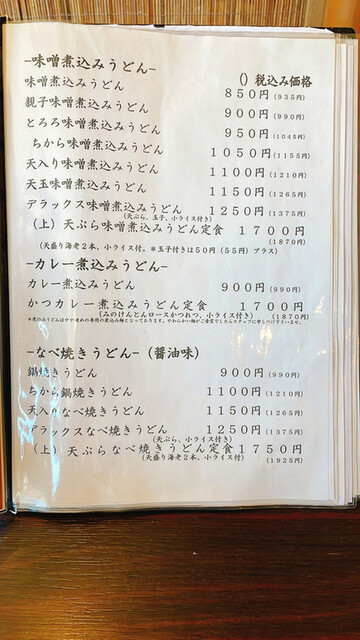 -味噌煮込みうどん-
() 税込み価格
味噌煮込みうどん 850円(935円)
親子味噌煮込みうどん 900円(990円)
とろろ味噌煮込みうどん 950円(1045円)
ちから味噌煮込みうどん 1050円(1155円)
天入り味噌煮込みうどん 1100円(1210円)
天玉味噌煮込みうどん 1150円(1265円)
デラックス味噌煮込みうどん 1250円(1375円)
(天ぷら、玉子、小ライス付き)
(上)天ぷら味噌煮込みうどん定食 1700円
(1870円)
(天盛り海老2本、小ライス付。※玉子付きは50円(55円)プラス)
-カレー煮込みうどん-
カレー煮込みうどん 900円(990円)
かつカレー煮込みうどん定食 1700円
(みのけんとんロースかつれつ、小ライス付き) (1870円)
※煮込みうどんはやや硬めの専用の煮込み麺となっております。やわらかい麺がご希望でしたらスタッフに申しつけ下さいませ。
-なべ焼きうどん-(醤油味)
鍋焼きうどん 900円(990円)
ちから鍋焼うどん 1100円(1210円)
天入りなべ焼うどん 1150円(1265円)
デラックスなべ焼うどん 1250円(1375円)
(天ぷら、小ライス付き)
(上)天ぷらなべ焼うどん定食 1750円
(天盛り海老2本、小ライス付) (1925円)